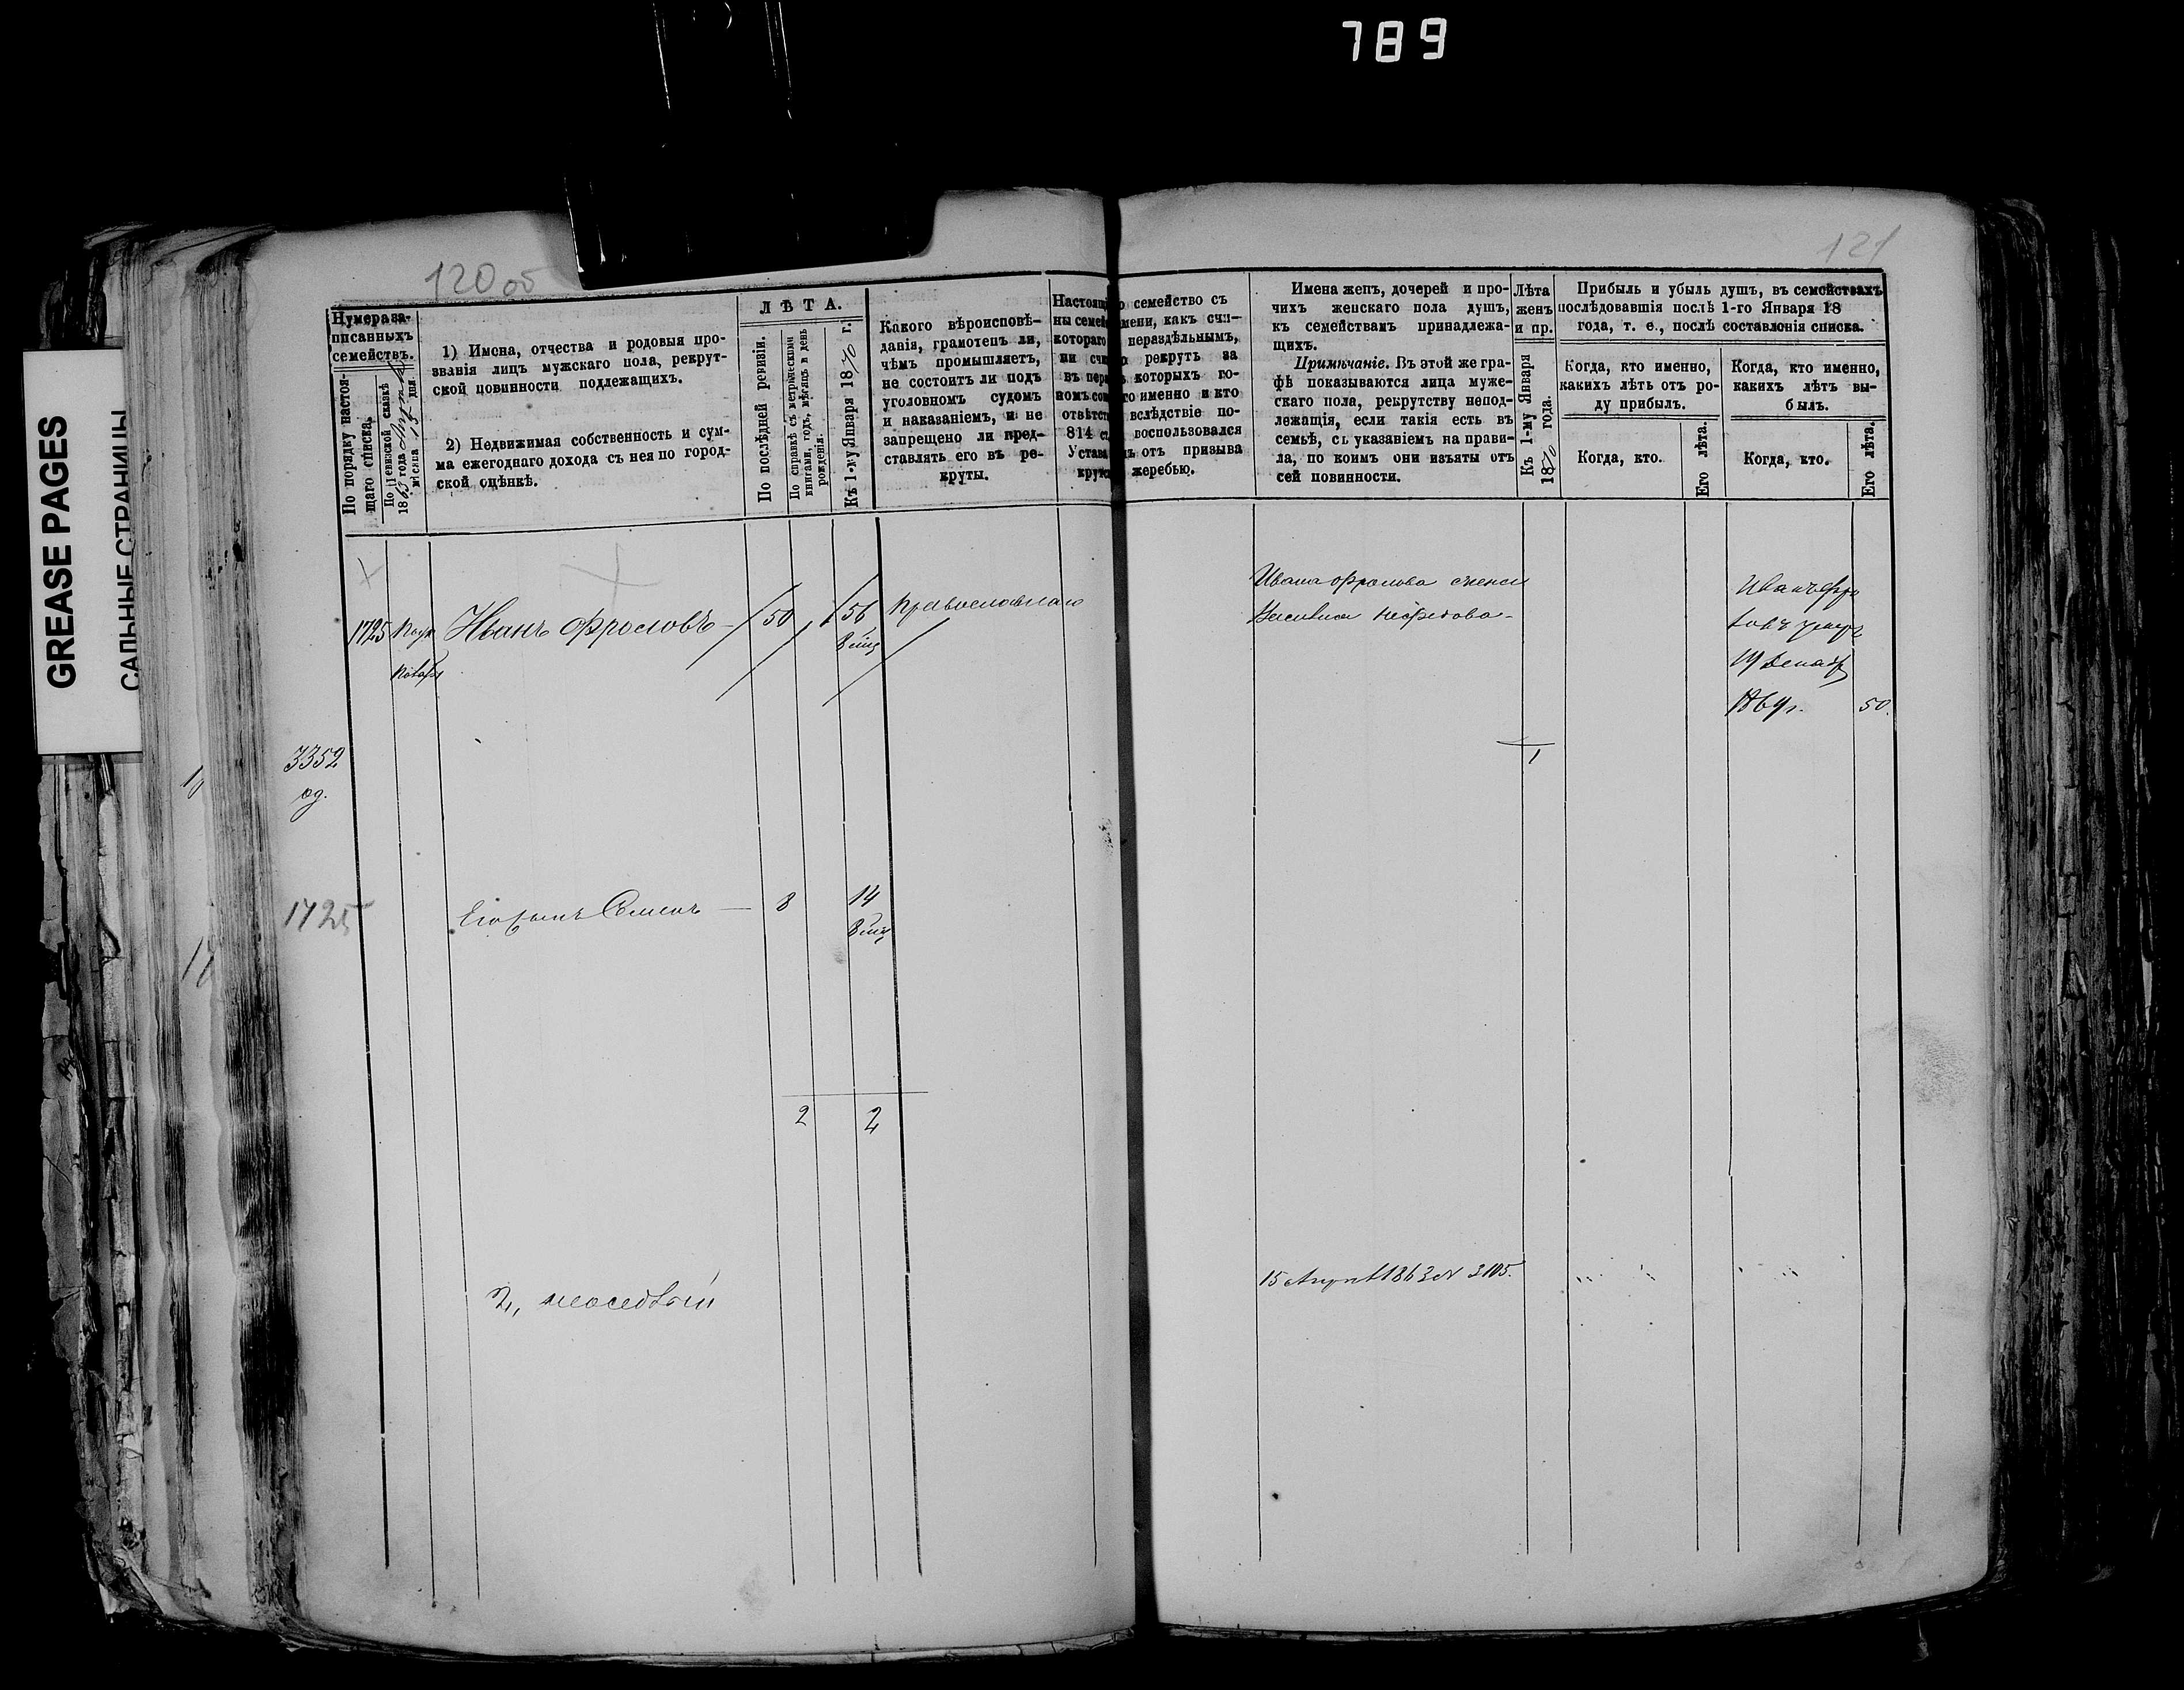 789
GREASE PAGES
САЛЬНЫЕ СТРАНИЦЫ
120 об
121
Нумера за-
писанныхъ
семействъ.
По порядку настоя-
щаго списка.
По ревизской сказкѣ
1863 года Августа
мѣсяца 15 дня.
1) Имена, отчества и родовыя про-
званія лицъ мужскаго пола, рекрут-
ской повинности подлежащихъ.
2) Недвижимая собственность и сум-
ма ежегоднаго дохода съ нея по город-
ской оцѣнкѣ.
ЛѢТА.
По послѣдней ревизіи.
По справкѣ съ метрическими
книгами, годъ, мѣсяцъ и день
рожденія.
Къ 1-му Января 1870 г.
Какого вѣроисповѣ-
данія, грамотенъ ли,
чѣмъ промышляетъ,
не состоитъ ли подъ
уголовномъ судомъ
и наказаніемъ, и не
запрещено ли пред-
ставлять его въ ре-
круты.
Настоящ о семейство съ
ны семей мени, какъ счи-
котораго нераздѣльнымъ,
ли счи рекрутъ за
въ пер которыхъ го-
номъ со го именно и кто
отвѣтст вслѣдствіе по-
814 ст воспользовался
Устава отъ призыва
крут жеребью.
Имена женъ, дочерей и про-
чихъ женскаго пола душъ,
къ семействамъ принадлежа-
щихъ.
Примѣчаніе. Въ этой же гра-
фѣ показываются лица муже-
скаго пола, рекрутству непод-
лежащія, если такія есть въ
семьѣ, съ указаніемъ на прави-
ла, по коимъ они изъяты отъ
сей повинности.
Лѣта
женъ
и пр.
Къ 1-му Января
1870 года.
Прибыль и убыль душъ, въ семействахъ
послѣдовавшія послѣ 1-го Января 18
года, т. е., послѣ составленія списка.
Когда, кто именно,
какихъ лѣтъ отъ ро-
ду прибылъ.
Когда, кто.
Его лѣта.
Когда, кто именно,
какихъ лѣтъ вы-
былъ.
Когда, кто.
Его лѣта.
1725
Иванъ Фроловъ — 50 56
Православнаго
Ивана Фролова жена
Иванъ Фро
ловъ умеръ
19 Декабр
1869 г. 50.
3352
од.
1
1725
Его сынъ Семенъ — 8 14
2 2
2, неосѣдлый
15 Августа 1863 № 3105.